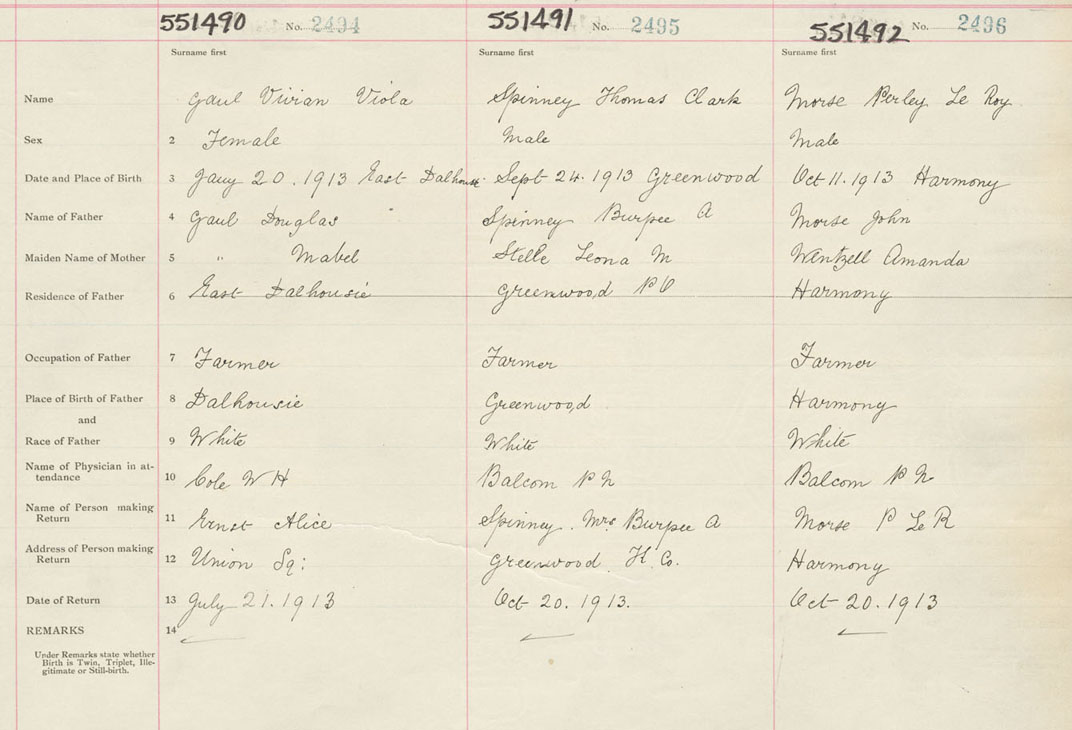 551490 No. 2494 551491 No. 2495 551492 No. 2496
Surname first Surname first Surname first
Name Gaul Vivian Viola Spinney Thomas Clark Morse Perley Le Roy
Sex 2 Female Male Male
Date and Place of Birth 3 Jany 20. 1913 East Dalhousie Sept 24. 1913 Greenwood Oct 11. 1913 Harmony
Name of Father 4 Gaul Douglas Spinney Burpee A Morse John
Maiden Name of Mother 5 " Mabel Stelle Leona M Wentzell Amanda
Residence of Father 6 East Dalhousie Greenwood P O Harmony
Occupation of Father 7 Farmer Farmer Farmer
Place of Birth of Father 8 Dalhousie Greenwood Harmony
and
Race of Father 9 White White White
Name of Physician in at-
tendance 10 Cole W H Balcom P N Balcom P N
Name of Person making
Return 11 Ernst Alice Spinney. Mrs Burpee A Morse P Le R
Address of Person making
Return 12 Union Sq: Greenwood. K. Co. Harmony
Date of Return 13 July 21. 1913 Oct 20. 1913. Oct 20. 1913
REMARKS 14
Under Remarks state whether
Birth is Twin, Triplet, Ille-
gitimate or Still-birth.